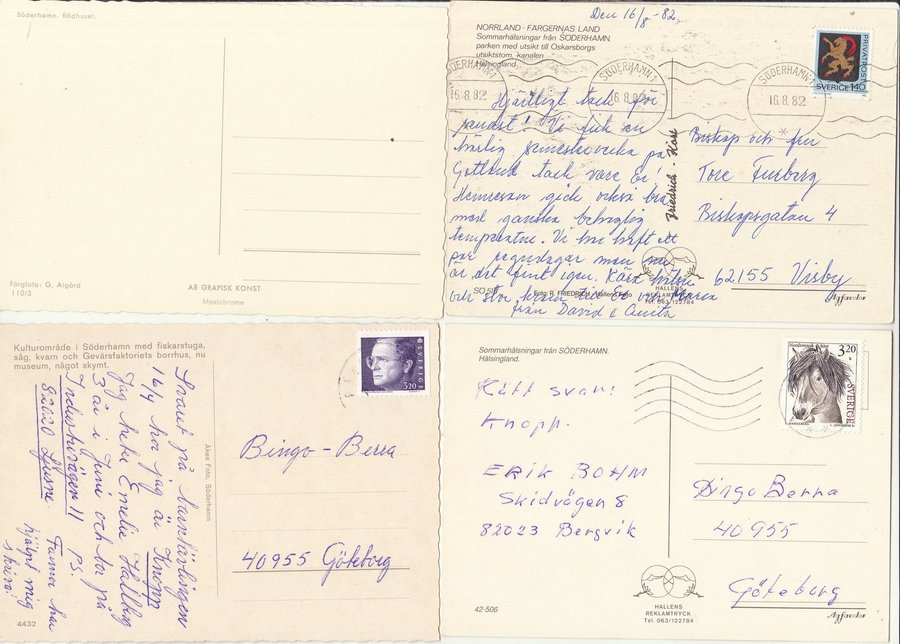 Söderhamn. Rådhuset.
Färgfoto: G. Algård
110/3
AB GRAFISK KONST
Maxichrome
Den 16/8 - 82
NORRLAND - FÄRGERNAS LAND
Sommarhälsningar från SÖDERHAMN,
parken med utsikt till Oskarsborgs
utsiktstorn, kanalen
Hälsingland
SÖDERHAMN 1
16.8.82
SÖDERHAMN 1
16.8.82
SÖDERHAMN 1
16.8.82
PRIVATPOST
SVERIGE 140
Hjärtligt tack för
senast! Vi fick en
härlig semestervecka på
Gotland tack vare Er!
Hemresan gick också bra
med ganska behaglig
temperatur. Vi har haft ett
par regndagar men nu
är det fint igen. Kära hälsn
och stor kram till Er och Maria
från David & Anita
Friedrich - Kort
Biskop och fru
Tore Furberg
Biskopsgatan 4
62155 Visby
SO 5
Foto: R. FRIEDRICH, Hallens Foto
HALLENS
REKLAMTRYCK
Tel. 063/122784
Agfacolor
Kulturområde i Söderhamn med fiskarstuga,
såg, kvarn och Gevärsfaktoriets borrhus, nu
museum, något skymt.
SVERIGE
3.20
Svaret på barntävlingen
16/4 tror jag är Knopp
Jag heter Emelie Hallberg
3 år i Juni och bor på
Industrivägen 11
82020 Ljusne.
P.S.
Farmor har
hjälpt mig
skriva!
Åkes Foto, Söderhamn
Bingo - Berra
40955 Göteborg
4432
Sommarhälsningar från SÖDERHAMN.
Hälsingland.
3.20
SVERIGE
Rätt svar:
Knopp.
ERIK BOHM
Skidvägen 8
82023 Bergvik
Bingo Berra
40955
Göteborg
42-506
HALLENS
REKLAMTRYCK
Tel. 063/122784
Agfacolor